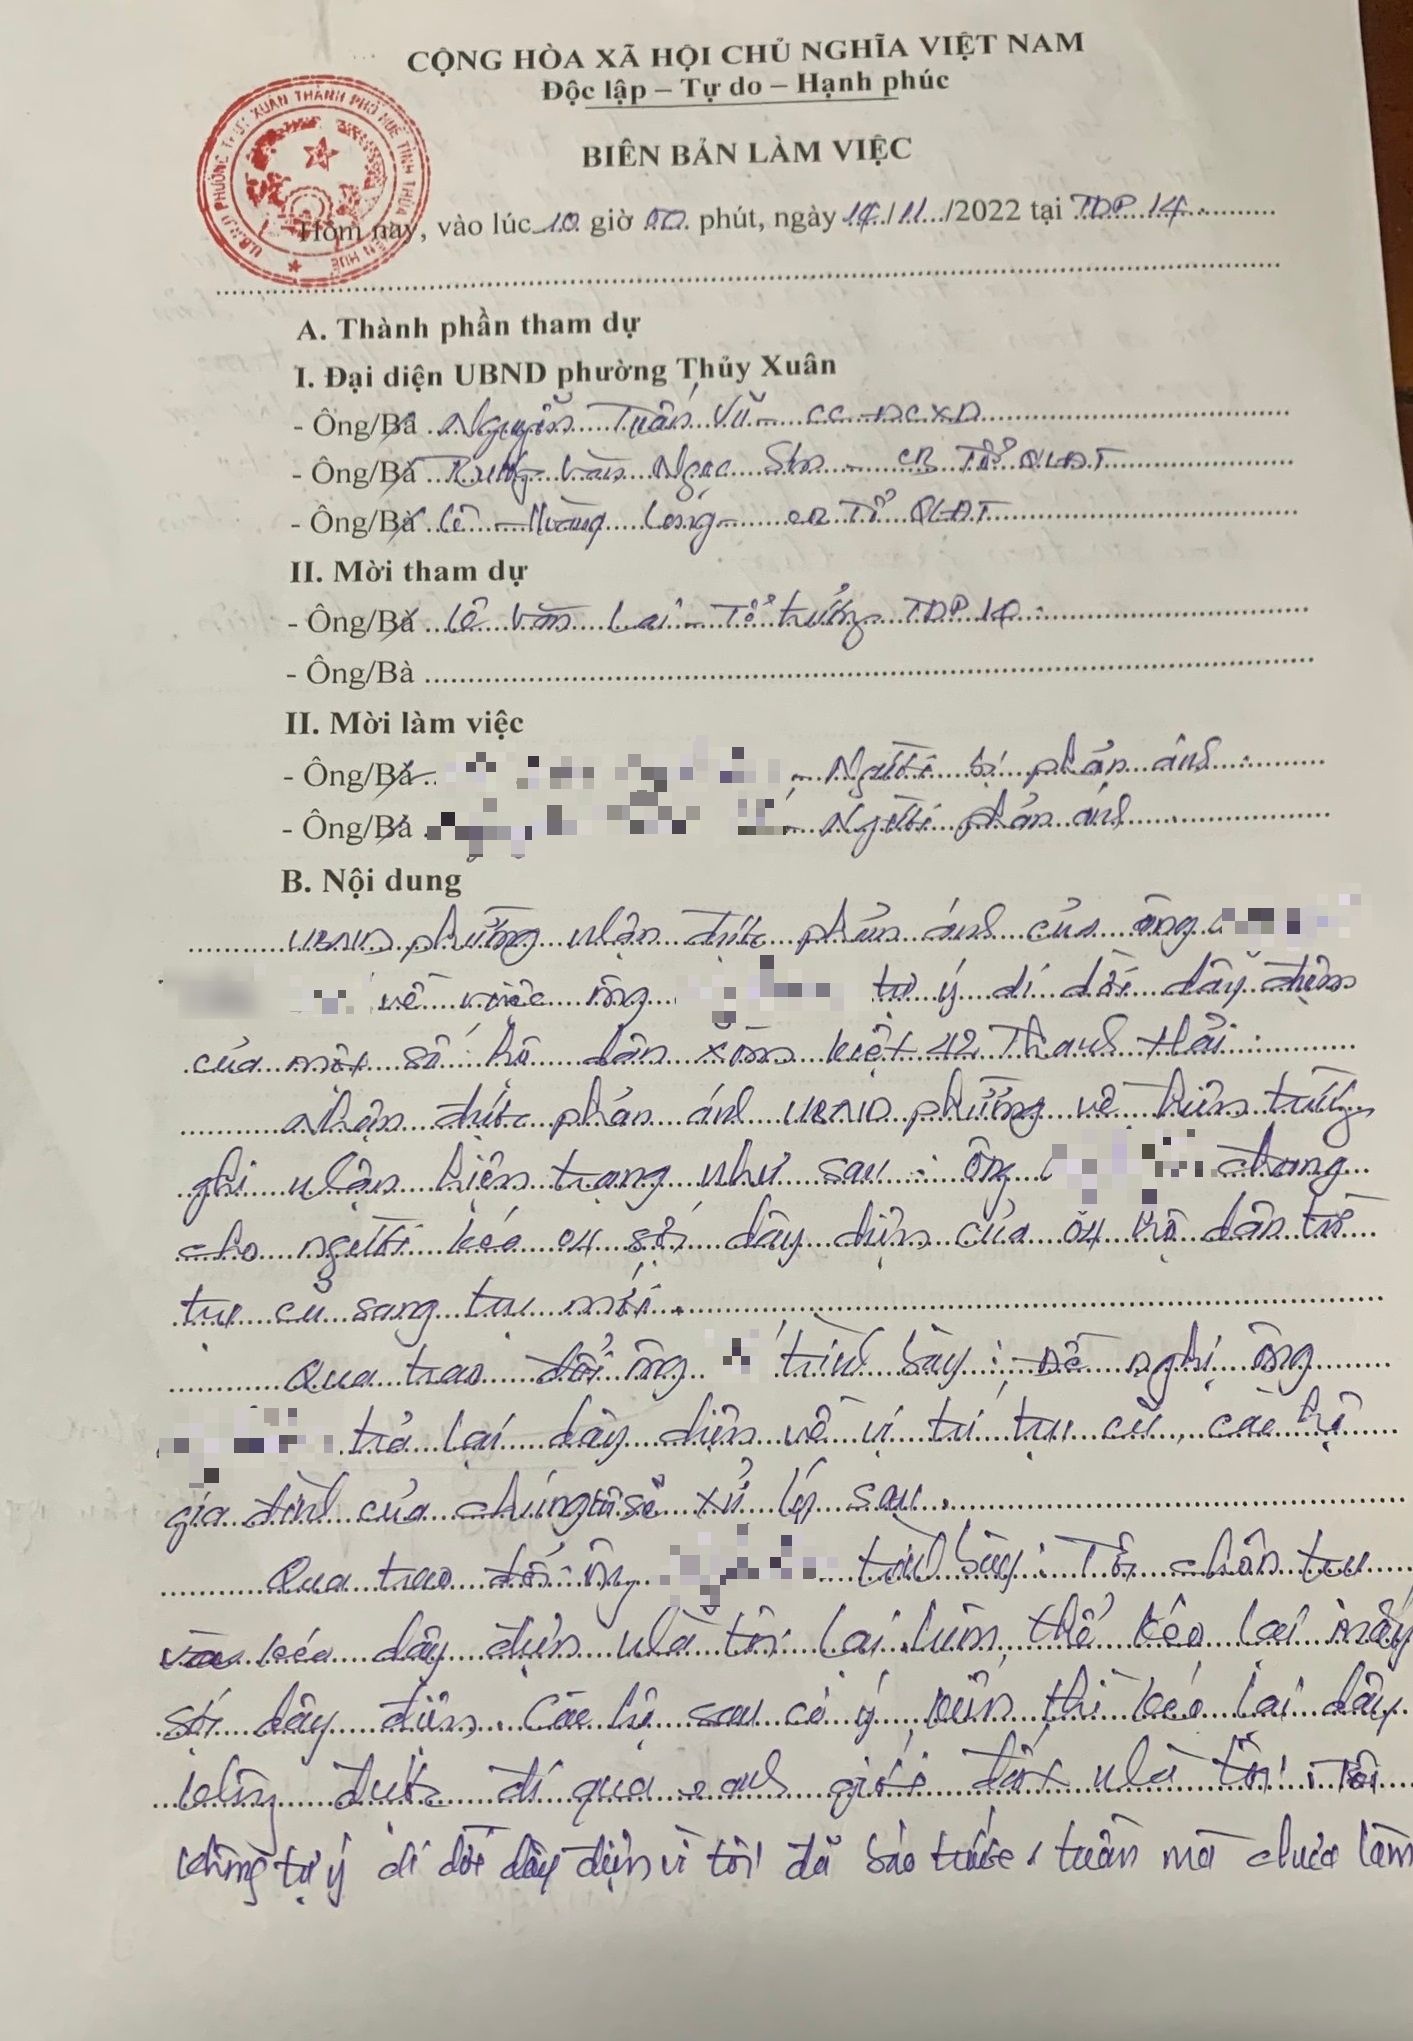 CỘNG HÒA XÃ HỘI CHỦ NGHĨA VIỆT NAM
Độc lập – Tự do – Hạnh phúc
BIÊN BẢN LÀM VIỆC
U.B.N.D PHƯỜNG THỦY XUÂN THÀNH PHỐ HUẾ TỈNH THỪA THIÊN HUẾ
Hôm nay, vào lúc 10 giờ 00 phút, ngày 14/11/2022 tại TDP 14
A. Thành phần tham dự
I. Đại diện UBND phường Thủy Xuân
- Ông/Bà Nguyễn Tuấn Vũ - CC ĐCXD
- Ông/Bà Văn Ngọc - CB Tổ QLĐT
- Ông/Bà Lê Hoàng Long - CB Tổ QLĐT
II. Mời tham dự
- Ông/Bà Lê Văn Lai - Tổ trưởng TDP 14
- Ông/Bà
II. Mời làm việc
- Ông/Bà - Người bị phản ánh
- Ông/Bà - Người phản ánh
B. Nội dung
UBND phường nhận được phản ánh của ông
về việc ông tự ý di dời dây điện
của một số hộ dân xóm kiệt 42 Thanh Hải.
Nhận được phản ánh UBND phường về hiện trường
ghi nhận hiện trạng như sau: ông đang
cho người kéo 04 sợi dây điện của 04 hộ dân từ
trụ cũ sang trụ mới.
Qua trao đổi ông trình bày: Đề nghị ông
trả lại dây điện về vị trí trụ cũ, các hộ
gia đình của chúng tôi sẽ xử lý sau.
Qua trao đổi ông trình bày: Tôi chôn trụ
kéo dây điện nhà tôi lại luôn thể kéo lại mấy
sợi dây điện. Các hộ sau có ý kiến thì kéo lại dây
không được đi qua ranh giới đất nhà tôi. Tôi
không tự ý di dời dây điện vì tôi đã báo trước 1 tuần mà chưa làm